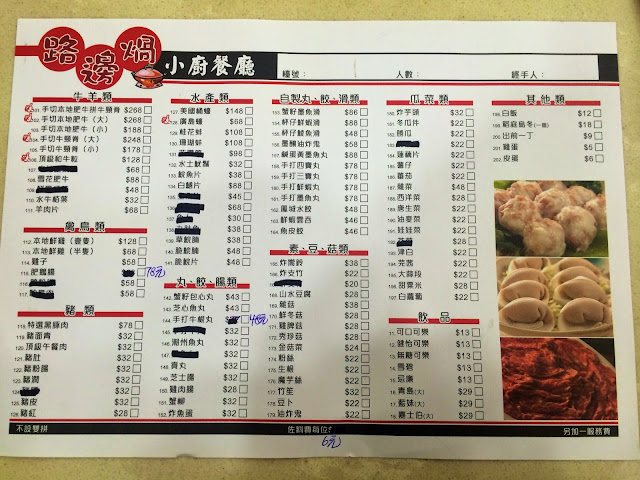 路邊煱
小廚餐廳
檯號：
人數：
經手人：
牛羊類
101. 手切本地肥牛拼牛頸脊 $268
102. 手切本地肥牛（大） $268
103. 手切本地肥牛（小） $188
104. 手切牛頸脊（大） $248
105. 手切牛頸脊（小） $178
106. 頂級和牛粒 $128
107. $68
108. 雪花肥牛 $88
109. $48
110. 水牛栢葉 $32
111. 羊肉片 $38
鷄鳥類
112. 本地鮮雞（壹隻） $128
113. 本地鮮雞（半隻） $68
114. 雞子 $58
115. 肥鵝腸 78元
116. $58
117. $58
豬類
118. 特選黑豚肉 $78
119. 豬面青 $32
120. 頂級午餐肉 $32
121. 豬肚 $32
122. 豬粉腸 $32
123. 豬潤 $32
124. $32
125. 豬皮 $32
126. 豬紅 $28
水產類
127. 美國蟮 $148
128. 廣島蠔 $68
129. 桂花蚌 $108
130. 珊瑚蚌 $108
131. $98
132. 水士魷鬚 $32
133. 脆魚片 $38
134. 白鱔片 $58
135. $48
136. $68
137. $32
138. $38
139. 草鯇腩 $38
140. 脆鯇腩 $48
141. 脆鯇片 $48
丸、餃、腸類
142. 蟹籽包心丸 $43
143. 芝心魚丸 $43
144. 手打牛蝦丸 48元
145. $32
146. 潮州魚丸 $32
147. $32
148. 貢丸 $32
149. 芝士腸 $32
150. 雞肉腸 $28
151. 蟹柳 $32
152. 炸魚蛋 $32
自製丸、餃、滑類
153. 蟹籽墨魚滑 $86
154. 秘仔鮮蝦滑 $88
155. 秘仔鯪魚滑 $48
156. 墨鱆油炸鬼 $48
157. 鹹蛋黃墨魚丸 $68
158. 手打四寶丸 $48
159. 手打三寶丸 $38
160. 手打鮮蝦丸 $68
161. 手打墨魚丸 $38
162. 鳳城水餃 $48
163. 鮮蝦雲吞 $46
164. 魚皮餃 $36
素、豆、菇類
165. 炸響鈴 $38
166. 炸支竹 $22
167. $20
168. 山水豆腐 $28
169. 鮑菇 $38
170. 鮮冬菇 $28
171. 雞脾菇 $28
172. 秀珍菇 $28
173. 金菇菜 $22
174. 粉絲 $22
175. 生根 $22
176. 魔芋絲 $22
177. 竹笙 $32
178. 豆卜 $22
179. 油炸鬼 $22
瓜菜類
180. 炸芋頭 $32
181. 冬瓜件 $22
182. 勝瓜 $22
183. $22
184. 蓮藕片 $22
185. 薯仔 $22
186. 番茄 $22
187. 雜菜 $48
188. 西洋菜 $28
189. 唐生菜 $28
190. 油麥菜 $28
191. 娃娃菜 $28
192. $28
193. 津白 $22
194. 芫茜 $22
195. 大蒜段 $22
196. 甜粟米 $28
197. 白蘿蔔 $22
飲品
11. 可口可樂 $13
12. 健怡可樂 $13
13. 無糖可樂 $13
14. 雪碧 $13
15. 忌廉 $13
16. 青島（大） $29
17. 藍妹（大） $29
18. 嘉士伯（大） $29
其他類
198. 白飯 $12
199. 稻庭烏冬（一個） $18
200. 出前一丁 $9
201. 雞蛋 $5
202. 皮蛋 $6
不設雙拼
佐料費每位
6元
另加一服務費